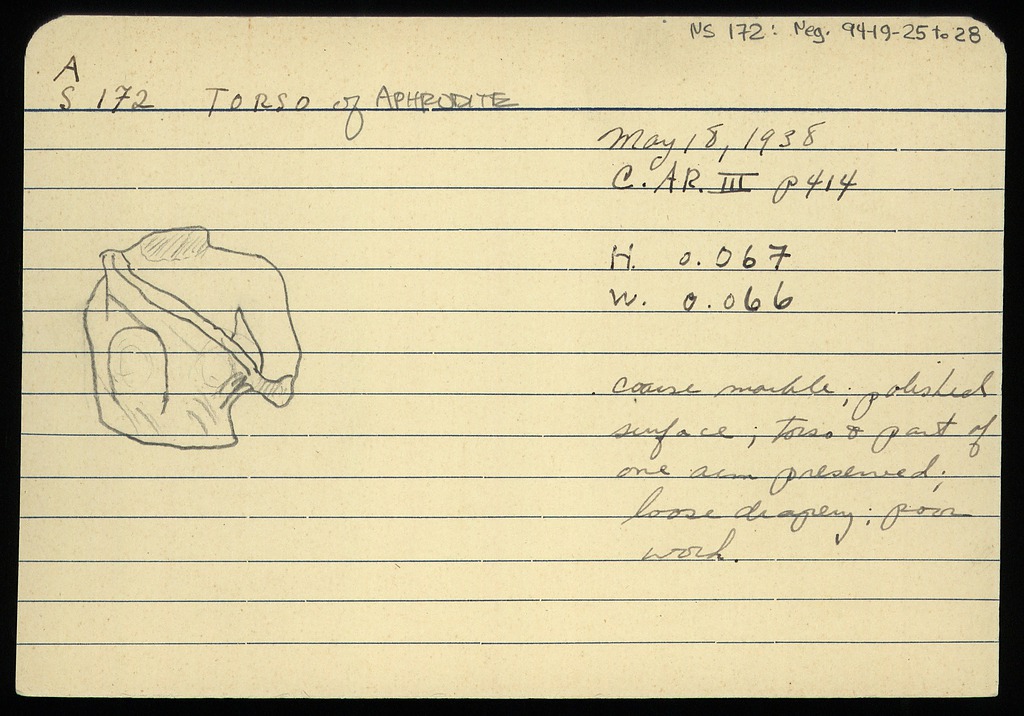 NS 172: Neg. 94-19-25 to 28
A
S 172 TORSO of APHRODITE
May 18, 1938
C. AR. III p 414
H. 0.067
W. 0.066
coarse marble; polished
surface; torso & part of
one arm preserved;
loose drapery; poor
work.